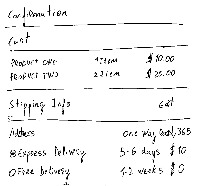 Confirmation
Cart
PRODUCT ONE 1 Item $10.00
PRODUCT TWO 2 Item $25.00
Shipping Info Edit
Address One Way Road, 365
Express Delivery 5-6 days $10
Free Delivery 1-2 weeks $0